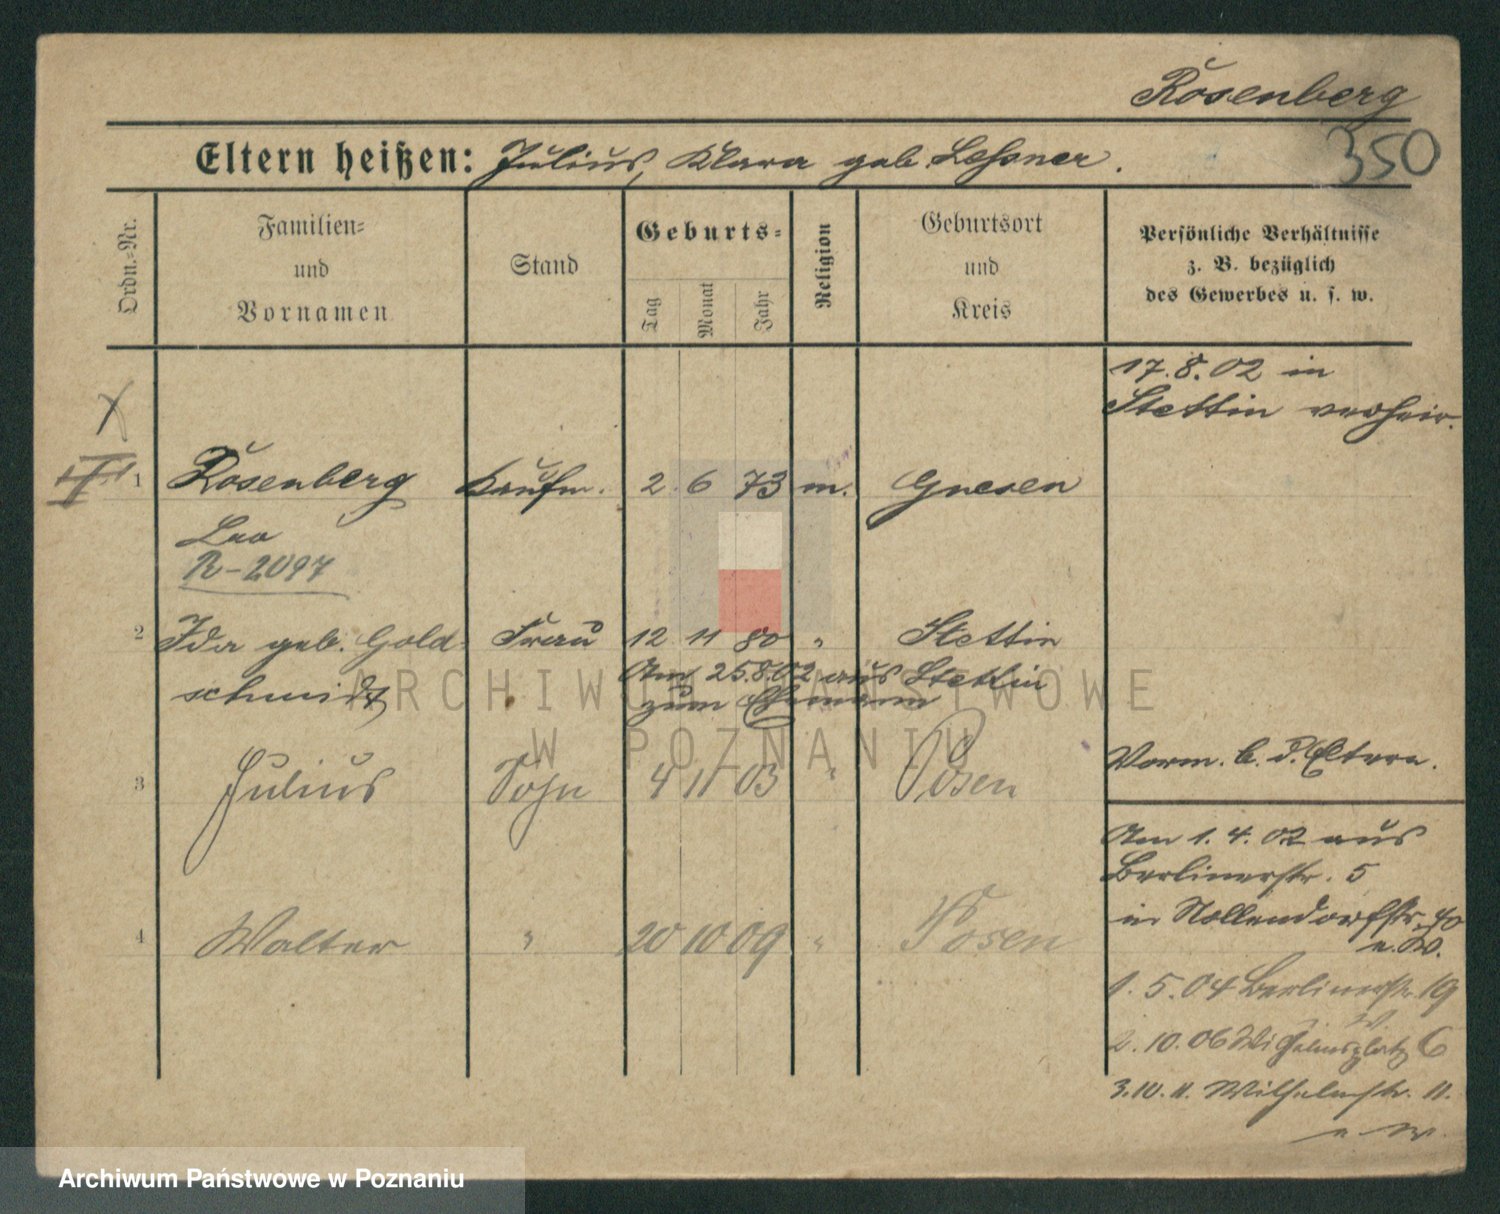 Rosenberg
350
Eltern heißen: Julius, Klara geb. Lessner.
Ordn.-Nr.
Familien-
und
Vornamen
Stand
Geburts-
Tag
Monat
Jahr
Religion
Geburtsort
und
Kreis
Persönliche Verhältnisse
z. B. bezüglich
des Gewerbes u. s. w.
17.8.02 in
Stettin verheir.
1 Rosenberg Kaufm. 2 6 73 m. Gnesen
Leo
R-2097
2 Ida geb. Gold- Frau 12 11 80 " Stettin
schmidt
Am 25.8.02 aus Stettin
zum Ehemann
3 Julius Sohn 4 11 03 " Posen
4 Walter " 20 10 09 " Posen
Vorm. b. d. Eltern.
Am 1.4.02 aus
Berlinerstr. 5
in Nollendorfstr. 40
n. W.
1.5.04 Berlinerstr. 19
2.10.06 Wilhelmsplatz 6
3.10.11. Wilhelmstr. 11.
n W.
ARCHIWUM PAŃSTWOWE
W POZNANIU
Archiwum Państwowe w Poznaniu